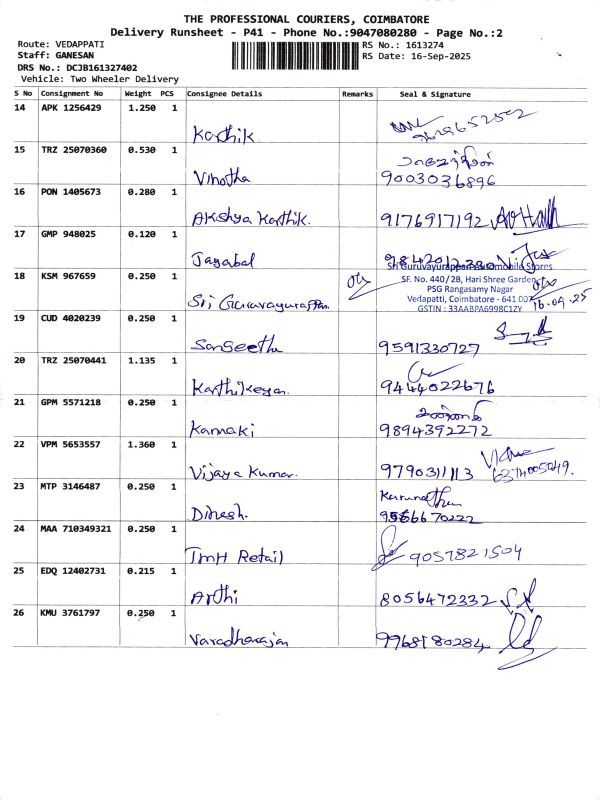 THE PROFESSIONAL COURIERS, COIMBATORE
Delivery Runsheet - P41 - Phone No.:9047080280 - Page No.:2
Route: VEDAPPATI
RS No.: 1613274
Staff: GANESAN
RS Date: 16-Sep-2025
DRS No.: DCJB161327402
Vehicle: Two Wheeler Delivery
S No Consignment No Weight PCS Consignee Details Remarks Seal & Signature
14 APK 1256429 1.250 1
Karthik
15 TRZ 25070360 0.530 1
Vinotha 9003036896
16 PON 1405673 0.280 1
Akshya Karthik. 9176917192
17 GMP 948025 0.120 1
Jagabal
Sri Guruvayurappan Automobile Stores
18 KSM 967659 0.250 1
SF. No. 440/2B, Hari Shree Garden,
PSG Rangasamy Nagar
Vedapatti, Coimbatore - 641 007
GSTIN : 33AABPA6998C1ZY
Sri Guruvayurappan. 16.09.25
19 CUD 4020239 0.250 1
Sangeetha 9591330727
20 TRZ 25070441 1.135 1
Karthikeyan. 9444022676
21 GPM 5571218 0.250 1
Kannaki 9894392272
22 VPM 5653557 1.360 1
Vijaya Kumar. 9790311113
23 MTP 3146487 0.250 1
Dinesh.
24 MAA 710349321 0.250 1
TMH Retail 9057821504
25 EDQ 12402731 0.215 1
Arthi 8056472332
26 KMU 3761797 0.250 1
Varadharajan 9968180284